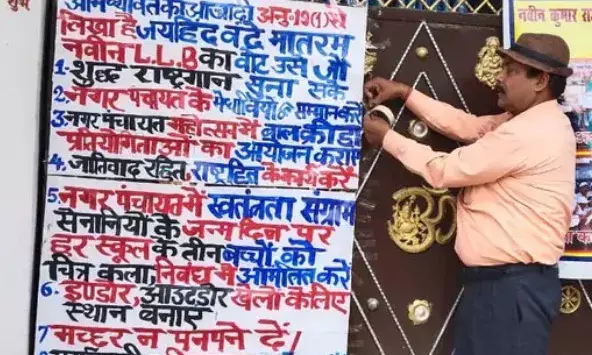 शुभ
अभिव्यक्ति की आजादी अनु.-19(1) से
लिखा है जयहिंद वंदे मातरम
नवीन L.L.B का वोट उसे जो
1. शुद्ध राष्ट्रगान सुना सके
2. नगर पंचायत के मेधावियों का सम्मान करें
3. नगर पंचायत महोत्सव में बाल क्रीडा
प्रतियोगिताओं का आयोजन कराए
4. जातिवाद रहित, राष्ट्रहित के कार्य करें
5. नगर पंचायत में स्वतंत्रता संग्राम
सेनानियों के जन्म दिन पर
हर स्कूल के तीन बच्चों को
चित्र कला, निबंध में आमंत्रित करें
6. इण्डोर, आउटडोर खेलों के लिए
स्थान बनाए
7 मच्छर न पनपने दें।
नवीन कुमार
ॐ